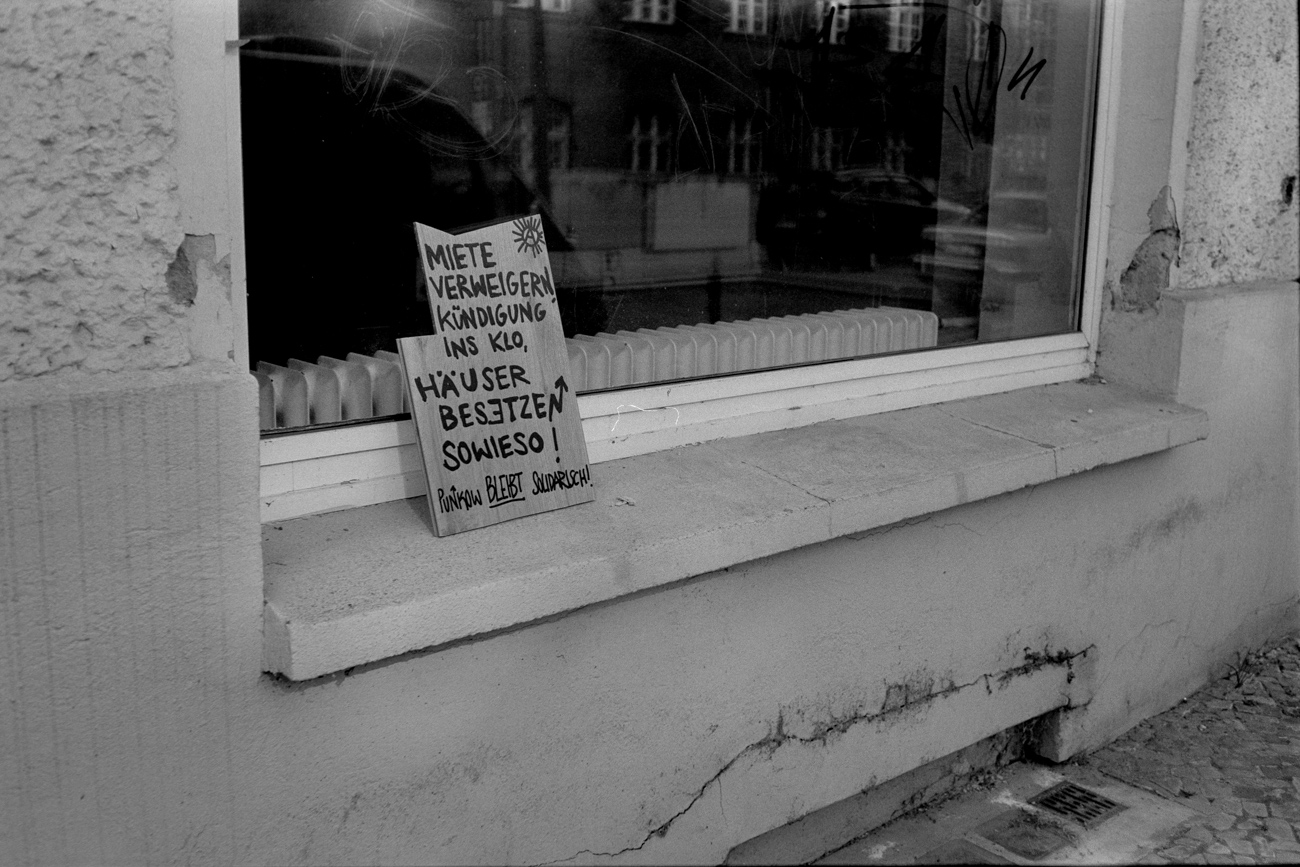 MIETE
VERWEIGERN,
KÜNDIGUNG
INS KLO,
HÄUSER
BESETZEN
SOWIESO!
PUNKOW BLEIBT SOLIDARISCH!